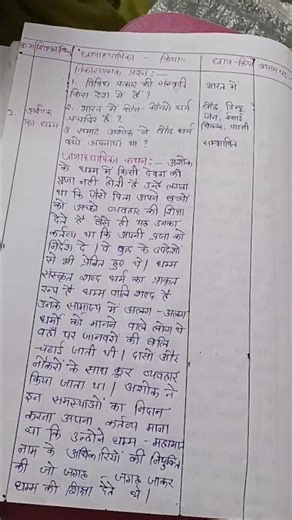 क्र०सं० शिक्षण बिन्दु छात्राध्यापिका - क्रिया- छात्र-क्रिया
विकासात्मक प्रश्न:-
1. विविध प्रकार की संस्कृति किस देश में है ? भारत में
2. भारत में कौन-कौनसे धर्म प्रचलित है ? बौद्ध, हिन्दू, जैन, ईसाई, सिक्ख, पारसी
3 सम्राट अशोक ने बौद्ध धर्म क्यों अपनाया था ? समस्यात्मक
2. अशोक का धम्म
छात्राध्यापिका कथन:- अशोक
के धम्म में किसी देवता की
पूजा नहीं होती है उन्हें लगता
था कि जैसे पिता अपने बच्चों
को अच्छे व्यवहार की शिक्षा
देते है वैसे ही यह उनका
कर्तव्य था कि अपनी प्रजा को
निर्देश दे । वे बुद्ध के उपदेशों
से भी प्रेरित हुए थे । धम्म
संस्कृत शब्द धर्म का प्राकृत
रूप है धम्म पालि शब्द है
उनके साम्राज्य में अलग-अलग
धर्मों को मानने वाले लोग थे
वहाँ पर जानवरों की बलि
चढ़ाई जाती थी । दासों और
नौकरों के साथ क्रूर व्यवहार
किया जाता था । अशोक ने
इन समस्याओं का निदान
करना अपना कर्तव्य माना
था कि उन्होंने धम्म-महामात
नाम के अधिकारियों की नियुक्ति
की जो जगह - जगह जाकर
धम्म की शिक्षा देते थे ।